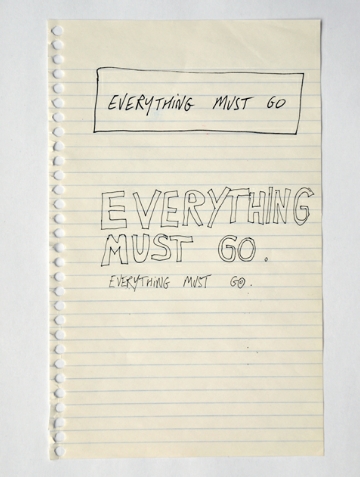 EVERYTHING MUST GO
EVERYTHING
MUST GO.
EVERYTHING MUST GO.